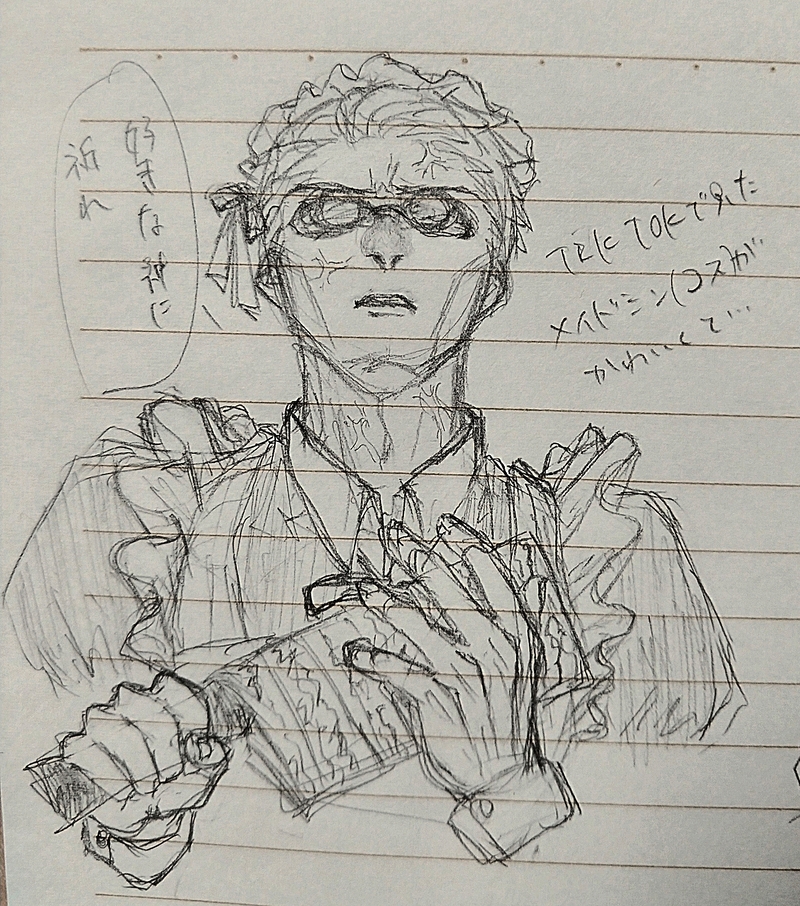 好きな神に
祈れ
TIK TOKで見た
メイドミン(コス)が
かわいくて…